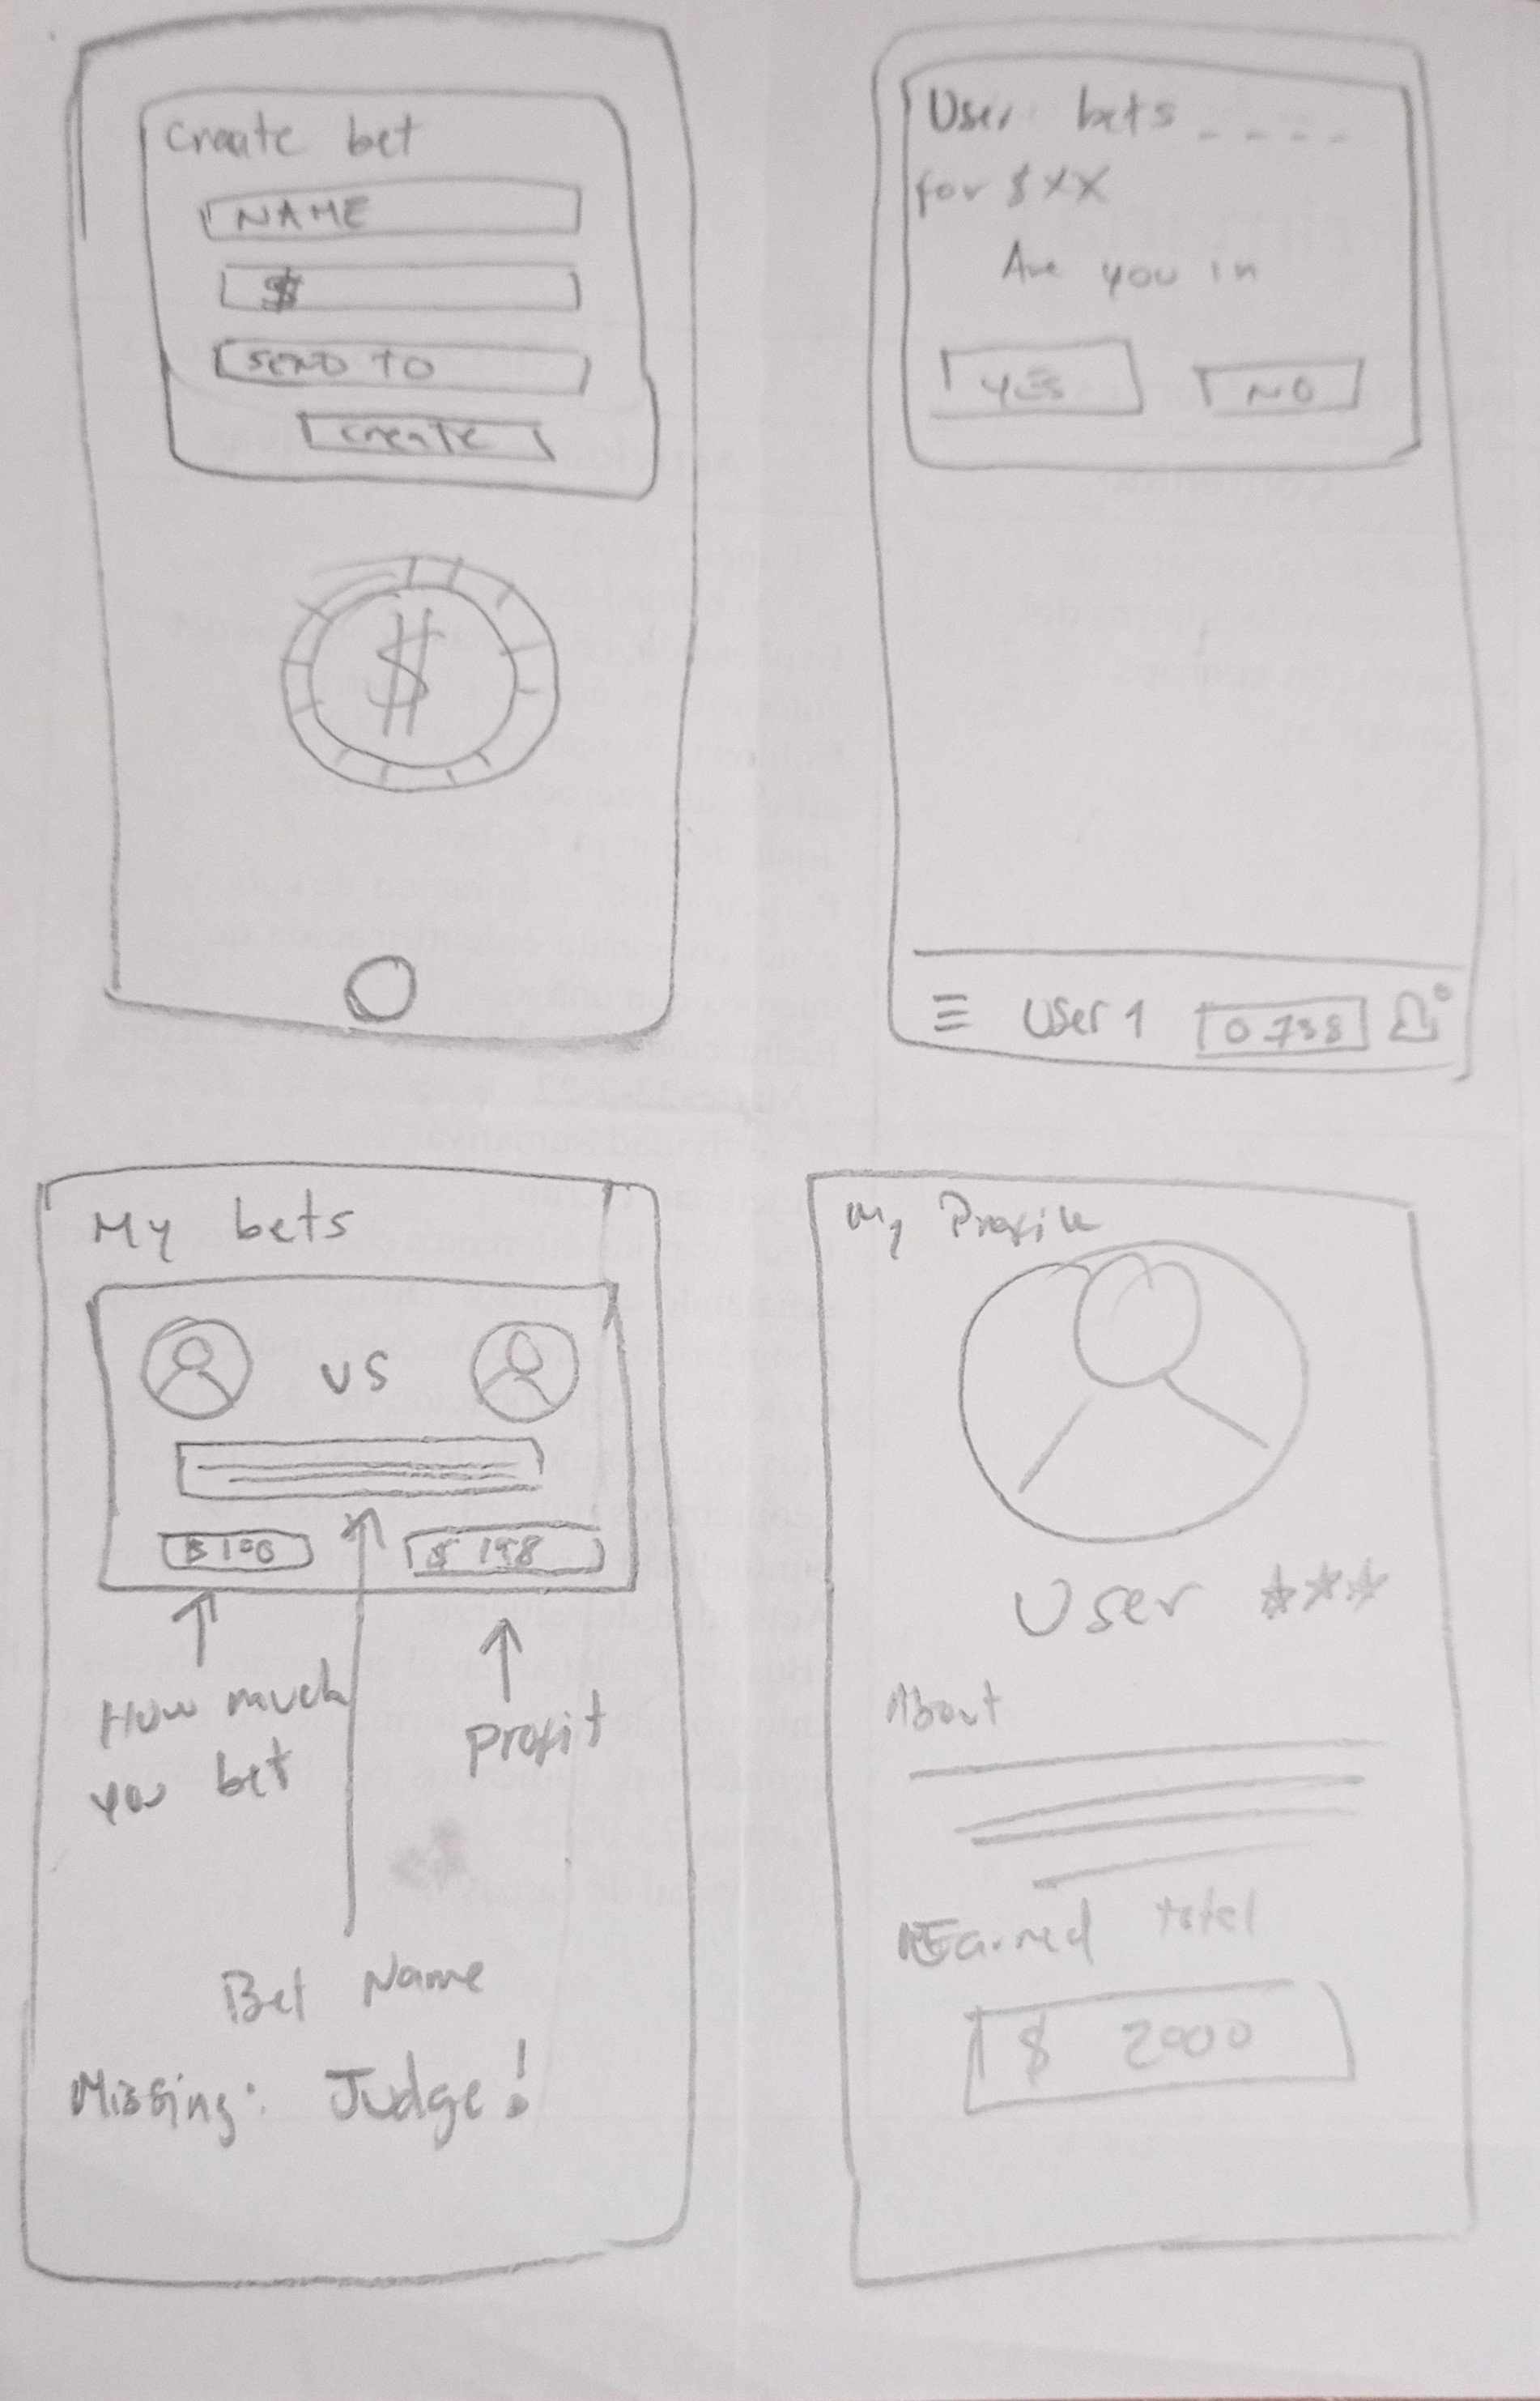 Create bet
NAME
$
SEND TO
create
$
User bets _ _ _ _
for $XX
Are you in
YES
NO
User 1
0.738
My bets
VS
$100
$ 198
How much
you bet
profit
Bet Name
Missing: Judge!
My Profile
User ***
About
Earned total
$ 2000